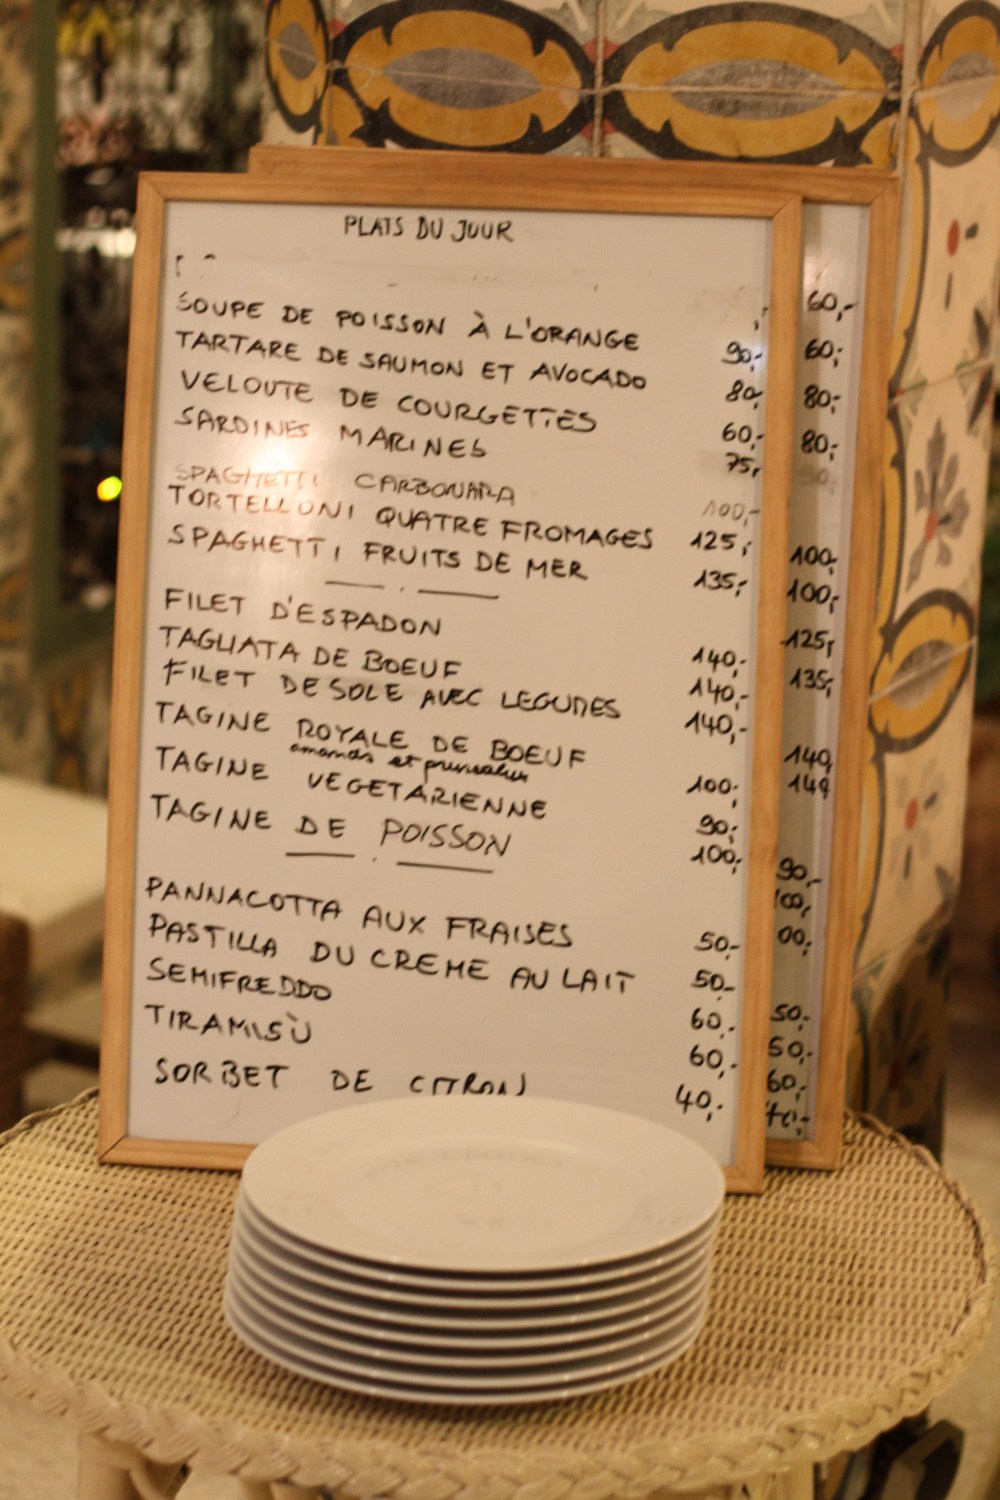 PLATS DU JOUR
SOUPE DE POISSON À L'ORANGE 90,-
TARTARE DE SAUMON ET AVOCADO 80,-
VELOUTE DE COURGETTES 60,-
SARDINES MARINES 75,
SPAGHETTI CARBONARA 100,-
TORTELLONI QUATRE FROMAGES 125,-
SPAGHETTI FRUITS DE MER 135,-
FILET D'ESPADON 140,-
TAGLIATA DE BOEUF 140,-
FILET DE SOLE AVEC LEGUMES 140,-
TAGINE ROYALE DE BOEUF 100,-
amands et pruneaux
TAGINE VEGETARIENNE 90,-
TAGINE DE POISSON 100,-
PANNACOTTA AUX FRAISES 50,-
PASTILLA DU CREME AU LAIT 50,-
SEMIFREDDO 60,-
TIRAMISÙ 60,-
SORBET DE CITRON 40,-
60,-
60,-
80,-
80,-
90,
100,
100,
125,
135,
140,
140
90,-
100,
00,
50,-
50,-
60,-